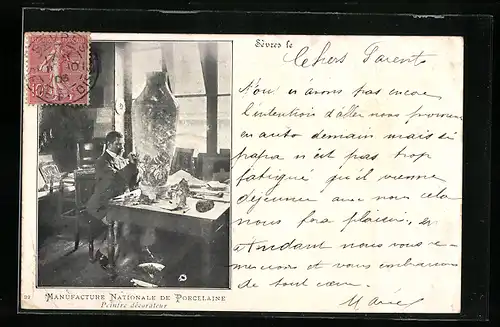 Sèvres le
Chers Parents
Nous n'avons pas encore
l'intention d'aller nous promener
en auto demain mais si
papa n'est pas trop
fatigué qu'il vienne
déjeuner avec nous cela
nous fera plaisir, en
attendant nous vous re-
mercions et vous embrassons
de tout cœur.
22 Manufacture Nationale de Porcelaine
Peintre décorateur